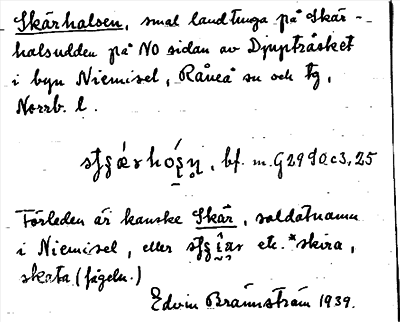 Skärhalsen, smal landtunga på Skär-
halsudden på NO sidan av Djupträsket
i byn Niemisel, Råneå sn och tg,
Norrb. l.
bf. m. G 29 S0 c3, 25
Förleden är kanske Skär, soldatnamn
i Niemisel, eller etc. *skira,
skata (fågeln.)
Edvin Brännström 1939.